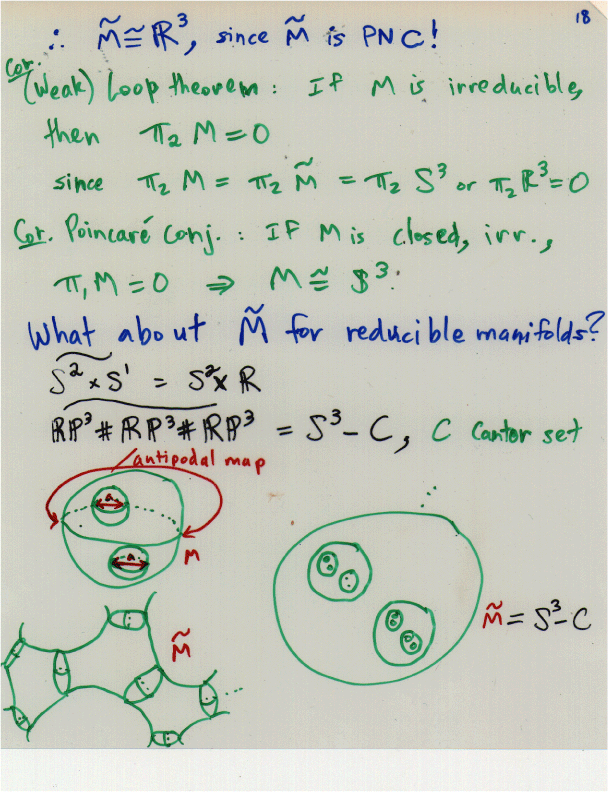 18
∴ M̃ ≅ ℝ³, since M̃ is PNC!
Cor.
(Weak) Loop theorem : If M is irreducible,
then π₂ M = 0
since π₂ M = π₂ M̃ = π₂ S³ or π₂ ℝ³ = 0
Cor. Poincaré Conj. : If M is closed, irr.,
π₁ M = 0 ⇒ M ≅ S³.
What about M̃ for reducible manifolds?
S² × S¹ = S² × ℝ
ℝP³ # ℝP³ # ℝP³ = S³ - C, C Cantor set
antipodal map
a
a
M
M̃
M̃ = S³ - C